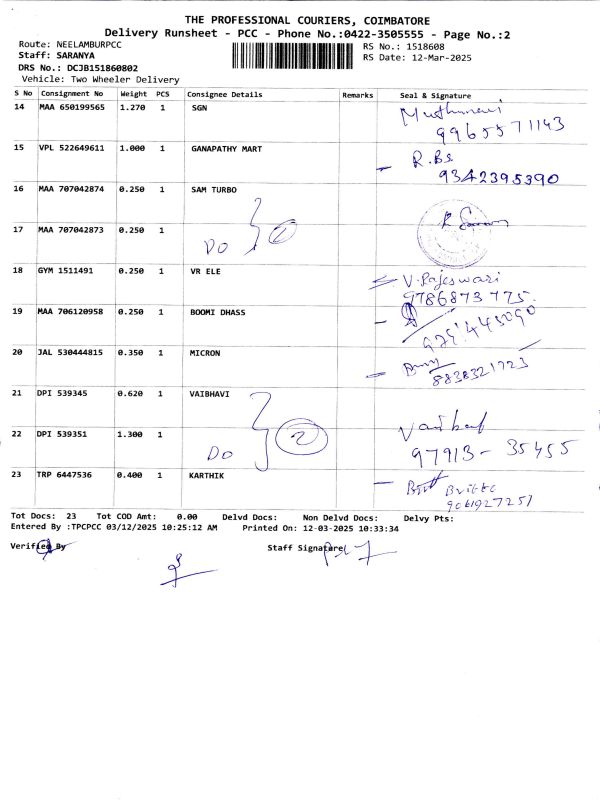 THE PROFESSIONAL COURIERS, COIMBATORE
Delivery Runsheet - PCC - Phone No.:0422-3505555 - Page No.:2
Route: NEELAMBURPCC RS No.: 1518608
Staff: SARANYA RS Date: 12-Mar-2025
DRS No.: DCJB151860802
Vehicle: Two Wheeler Delivery
S No Consignment No Weight PCS Consignee Details Remarks Seal & Signature
14 MAA 650199565 1.270 1 SGN
9965571143
15 VPL 522649611 1.000 1 GANAPATHY MART
R.Be
9342395390
16 MAA 707042874 0.250 1 SAM TURBO
17 MAA 707042873 0.250 1
DO 2
18 GYM 1511491 0.250 1 VR ELE
V.Rajeswari
9786873775.
19 MAA 706120958 0.250 1 BOOMI DHASS
20 JAL 530444815 0.350 1 MICRON
8838321723
21 DPI 539345 0.620 1 VAIBHAVI
22 DPI 539351 1.300 1
DO 2
97913-35455
23 TRP 6447536 0.400 1 KARTHIK
9061927251
Tot Docs: 23 Tot COD Amt: 0.00 Delvd Docs: Non Delvd Docs: Delvy Pts:
Entered By :TPCPCC 03/12/2025 10:25:12 AM Printed On: 12-03-2025 10:33:34
Verified By Staff Signature